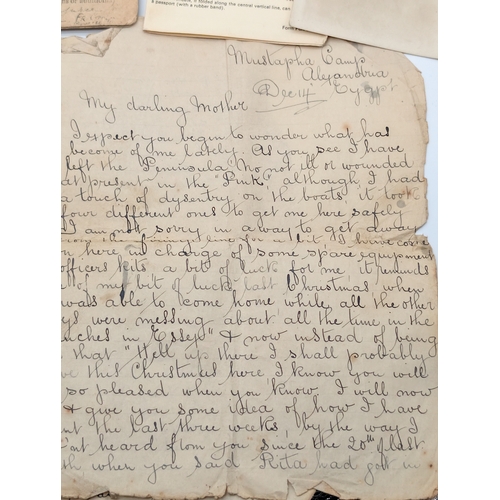 if folded along the central vertical line, can
a passport (with a rubber band).
Mustapha Camp
Alexandria
Dec 14th Egypt
My darling Mother
I expect you begin to wonder what has
become of me lately. As you see I have
left the "Peninsula" No not ill or wounded
at present in the "Pink", although I had
a touch of dysentry on the boats it took
four different ones to get me here safely
I am not sorry in a way to get away
from the firing line for a bit, I have come
here in charge of some spare equipment
officers kits a bit of luck for me, it reminds
of my bit of luck last Christmas when
was able to come home while all the other
were messing about all the time in the
in Essex" & now instead of being
that "Hell up there I shall probably
this Christmas here I know you will
so pleased when you know I will now
& give you some idea of how I have
the last three weeks, by the way I
heard from you since the 20th last
when you said Rita had got in